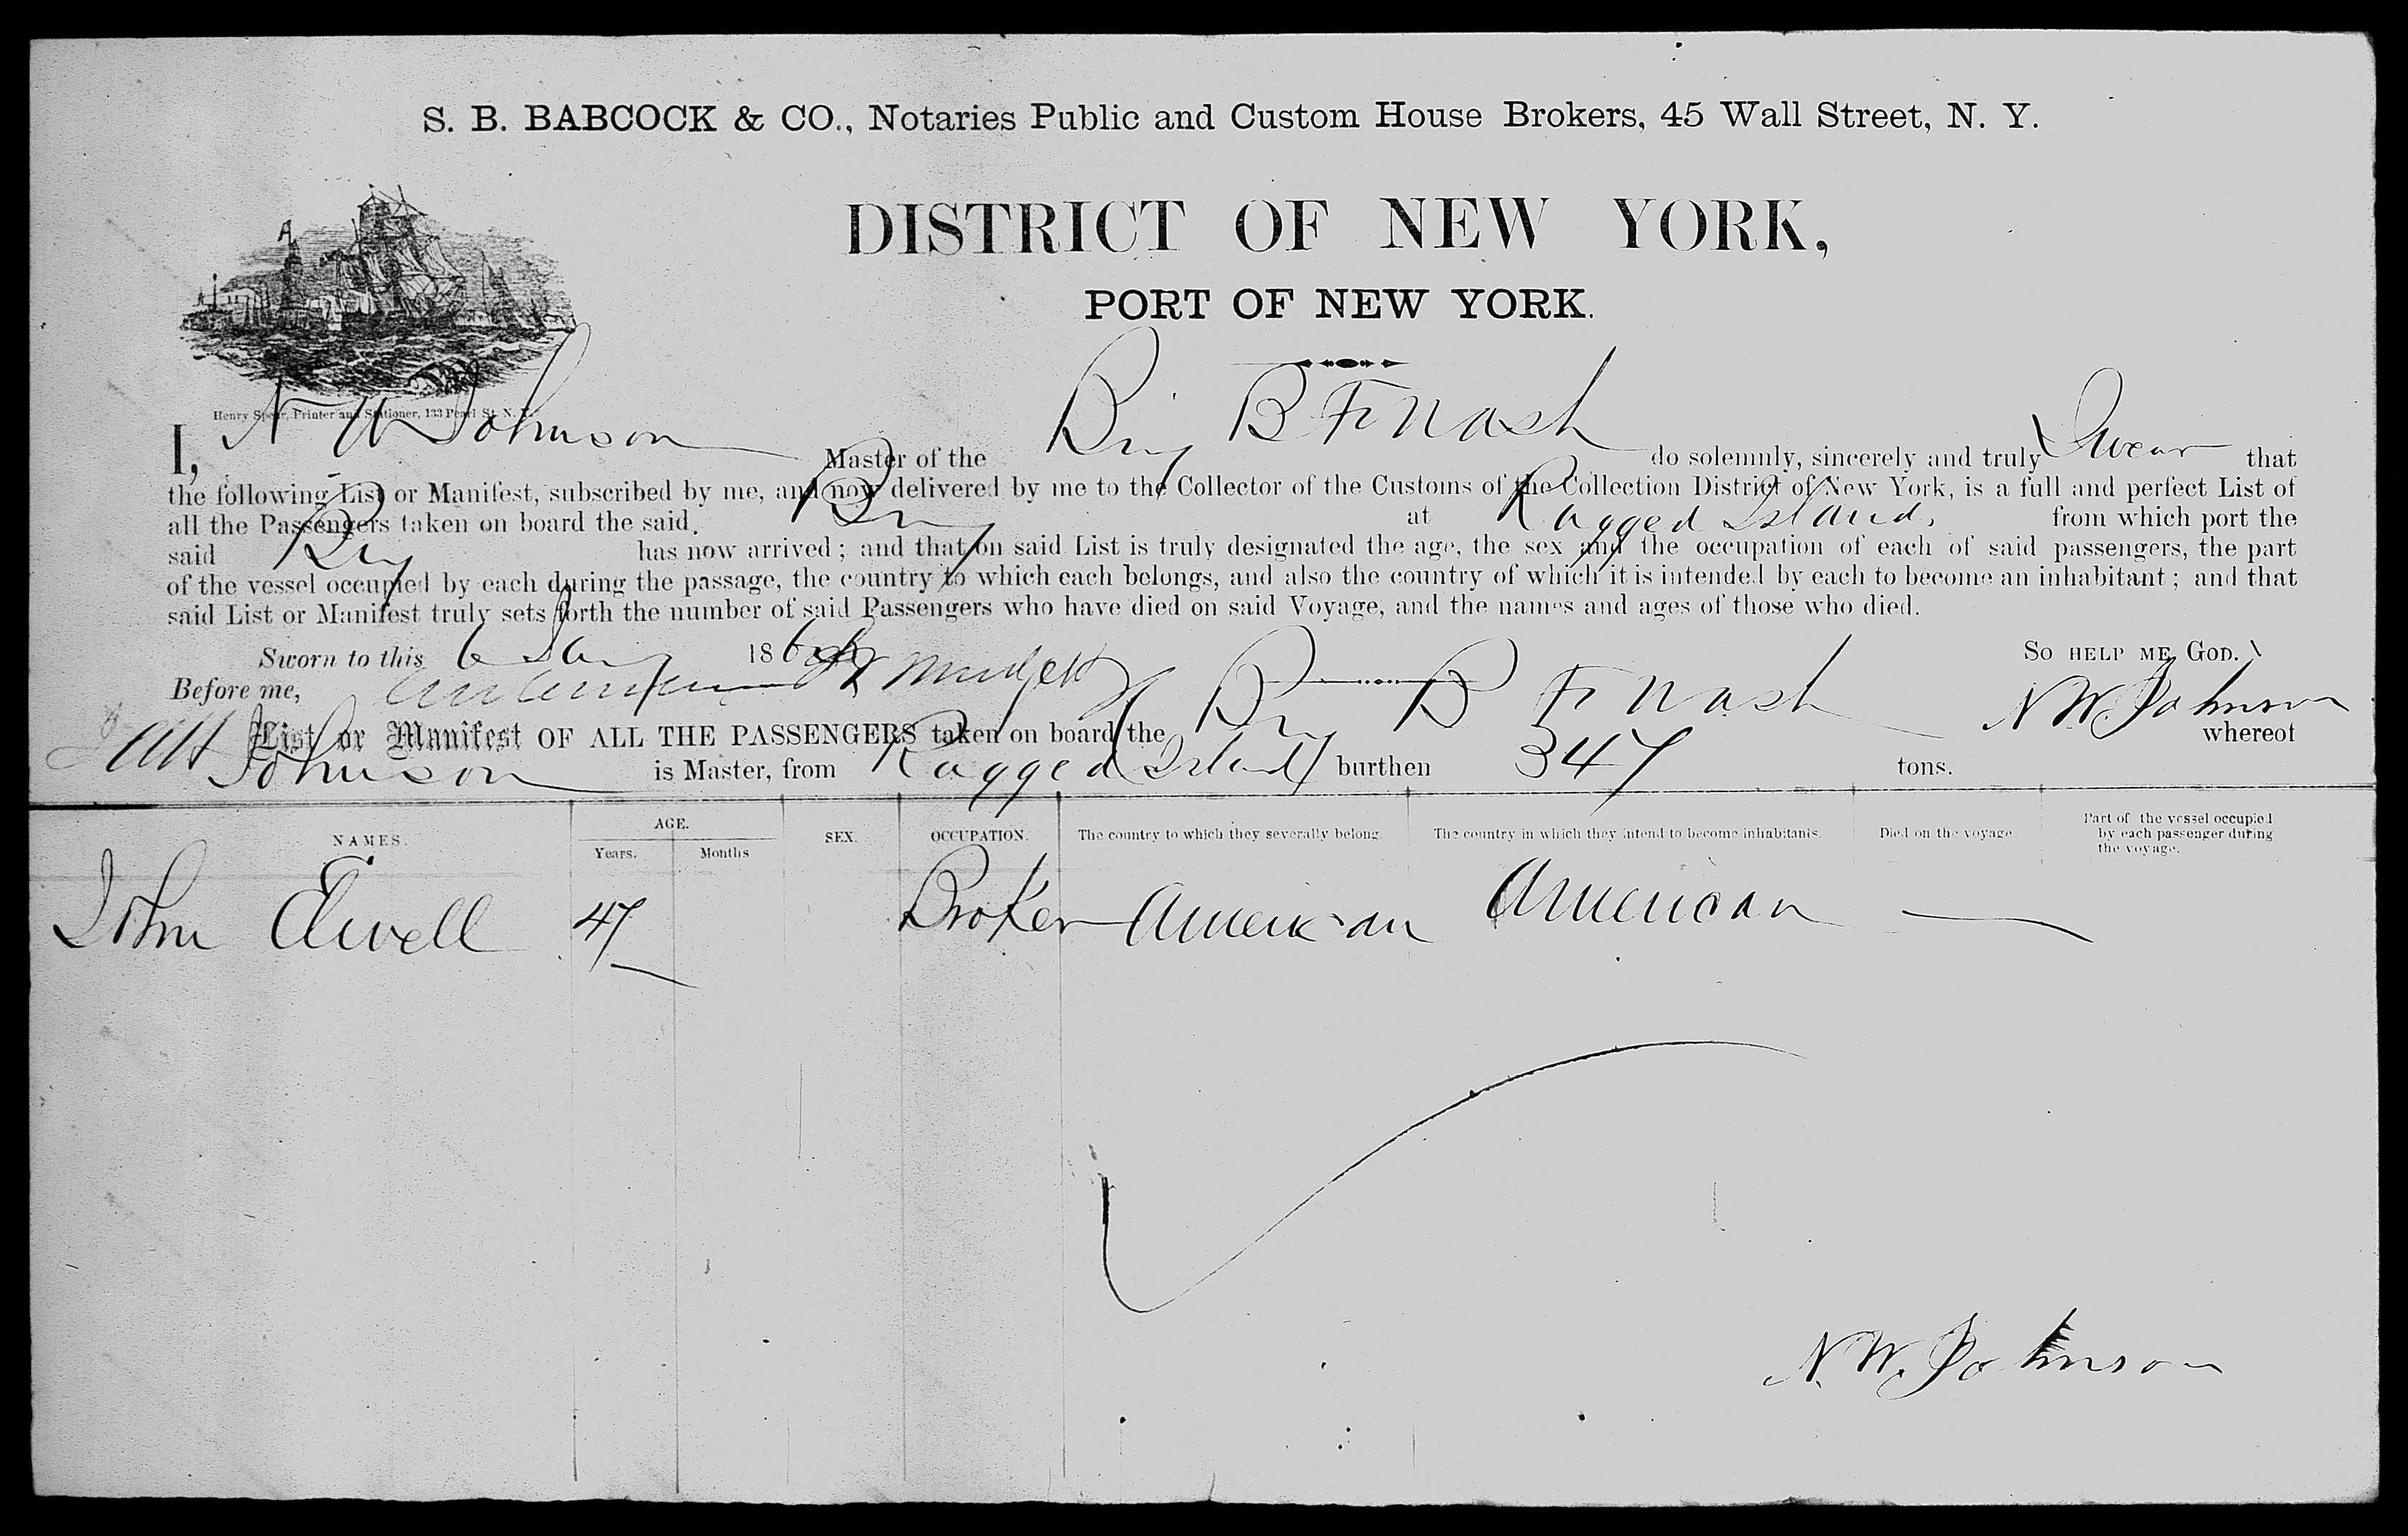 S. B. BABCOCK & CO., Notaries Public and Custom House Brokers, 45 Wall Street, N. Y.
DISTRICT OF NEW YORK,
PORT OF NEW YORK.
Henry Spear, Printer and Stationer, 133 Pearl St. N. Y.
I, N W Johnson Master of the Brig B F Nash do solemnly, sincerely and truly Swear that
the following List or Manifest, subscribed by me, and now delivered by me to the Collector of the Customs of the Collection District of New York, is a full and perfect List of
all the Passengers taken on board the said Brig at Ragged Island, from which port the
said Brig has now arrived; and that on said List is truly designated the age, the sex and the occupation of each of said passengers, the part
of the vessel occupied by each during the passage, the country to which each belongs, and also the country of which it is intended by each to become an inhabitant; and that
said List or Manifest truly sets forth the number of said Passengers who have died on said Voyage, and the names and ages of those who died.
Sworn to this 6 186 SO HELP ME GOD.
Before me, Brig B F Nash N W. Johnson
List or Manifest OF ALL THE PASSENGERS taken on board the whereot
Johnson is Master, from Ragged Island burthen 347 tons.
NAMES. AGE. Years. Months SEX. OCCUPATION. The country to which they severally belong. The country in which they intend to become inhabitants. Died on the voyage. Part of the vessel occupied by each passenger during the voyage.
John Elwell 47 Broker American American
N. W. Johnson